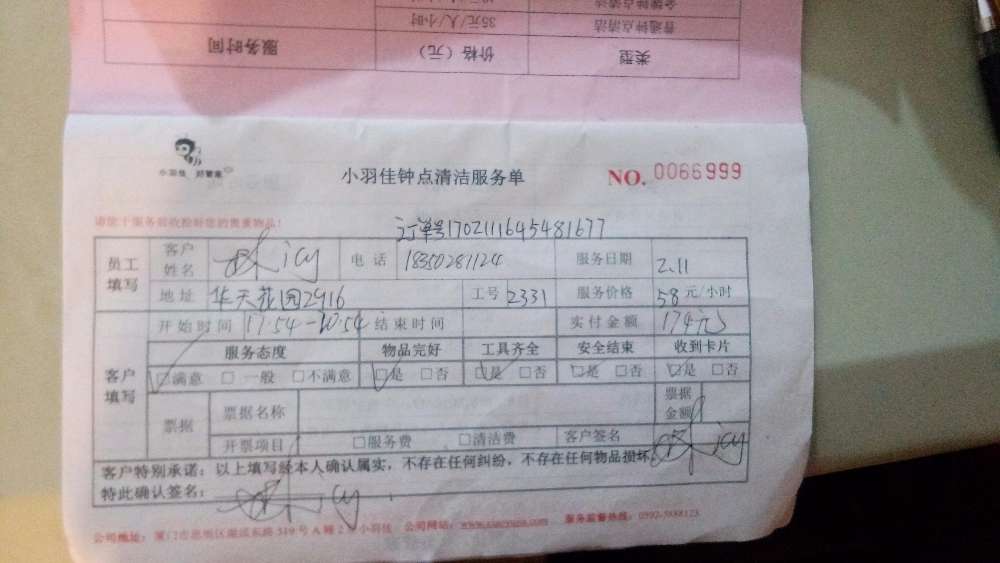 普通钟点清洁 35元/人/小时
类型 价格(元) 服务时间
小羽佳 好管家
小羽佳钟点清洁服务单 NO. 0066999
请您于服务前收检好您的贵重物品!
订单号1702111645481677
员工填写 客户姓名 林icy 电话 18350281124 服务日期 2.11
地址 华天花园2916 工号 2331 服务价格 58元/小时
开始时间 17:54-20:54 结束时间 实付金额 174元
客户填写 服务态度 物品完好 工具齐全 安全结束 收到卡片
☑满意 □一般 □不满意 ☑是 □否 ☑是 □否 ☑是 □否 ☑是 □否
票据 票据名称 票据金额
开票项目 □服务费 □清洁费 客户签名 林icy
客户特别承诺:以上填写经本人确认属实,不存在任何纠纷,不存在任何物品损坏
特此确认签名: 林icy
公司地址:厦门市思明区湖滨东路319号A幢2 小羽佳 公司网站: 服务监督热线:0592-5888123